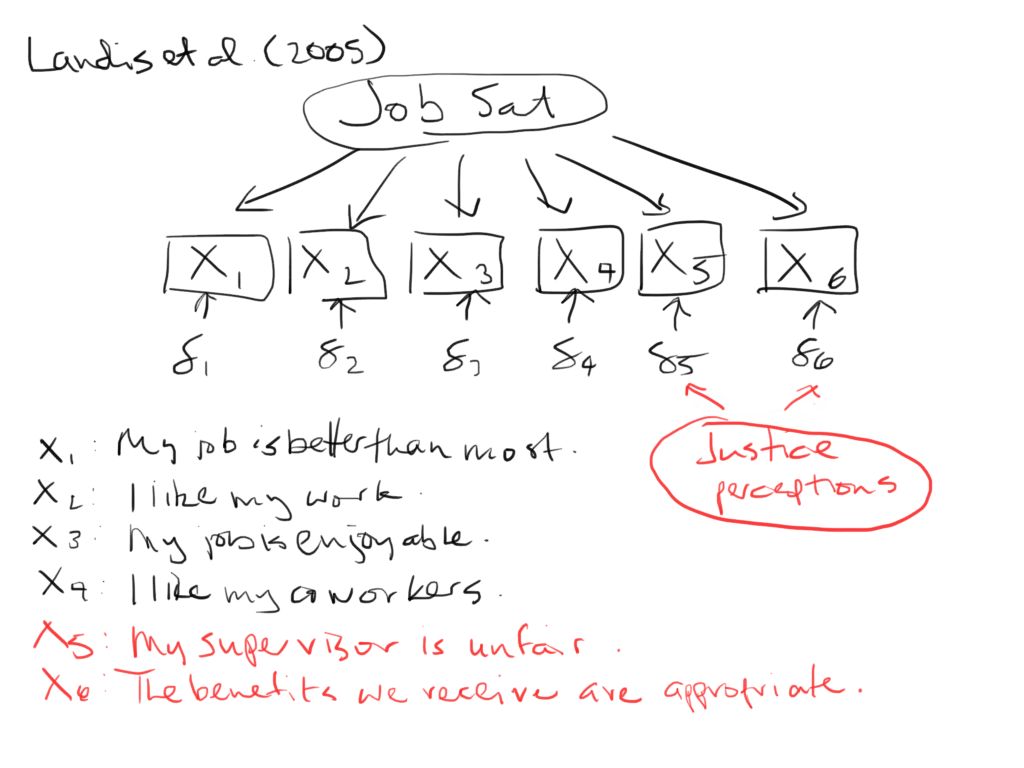 Landis et al. (2005)
Job Sat
X1 X2 X3 X4 X5 X6
δ1 δ2 δ3 δ4 δ5 δ6
Justice
perceptions
X1: My job is better than most.
X2: I like my work.
X3: My job is enjoyable.
X4: I like my coworkers.
X5: My supervisor is unfair.
X6: The benefits we receive are appropriate.